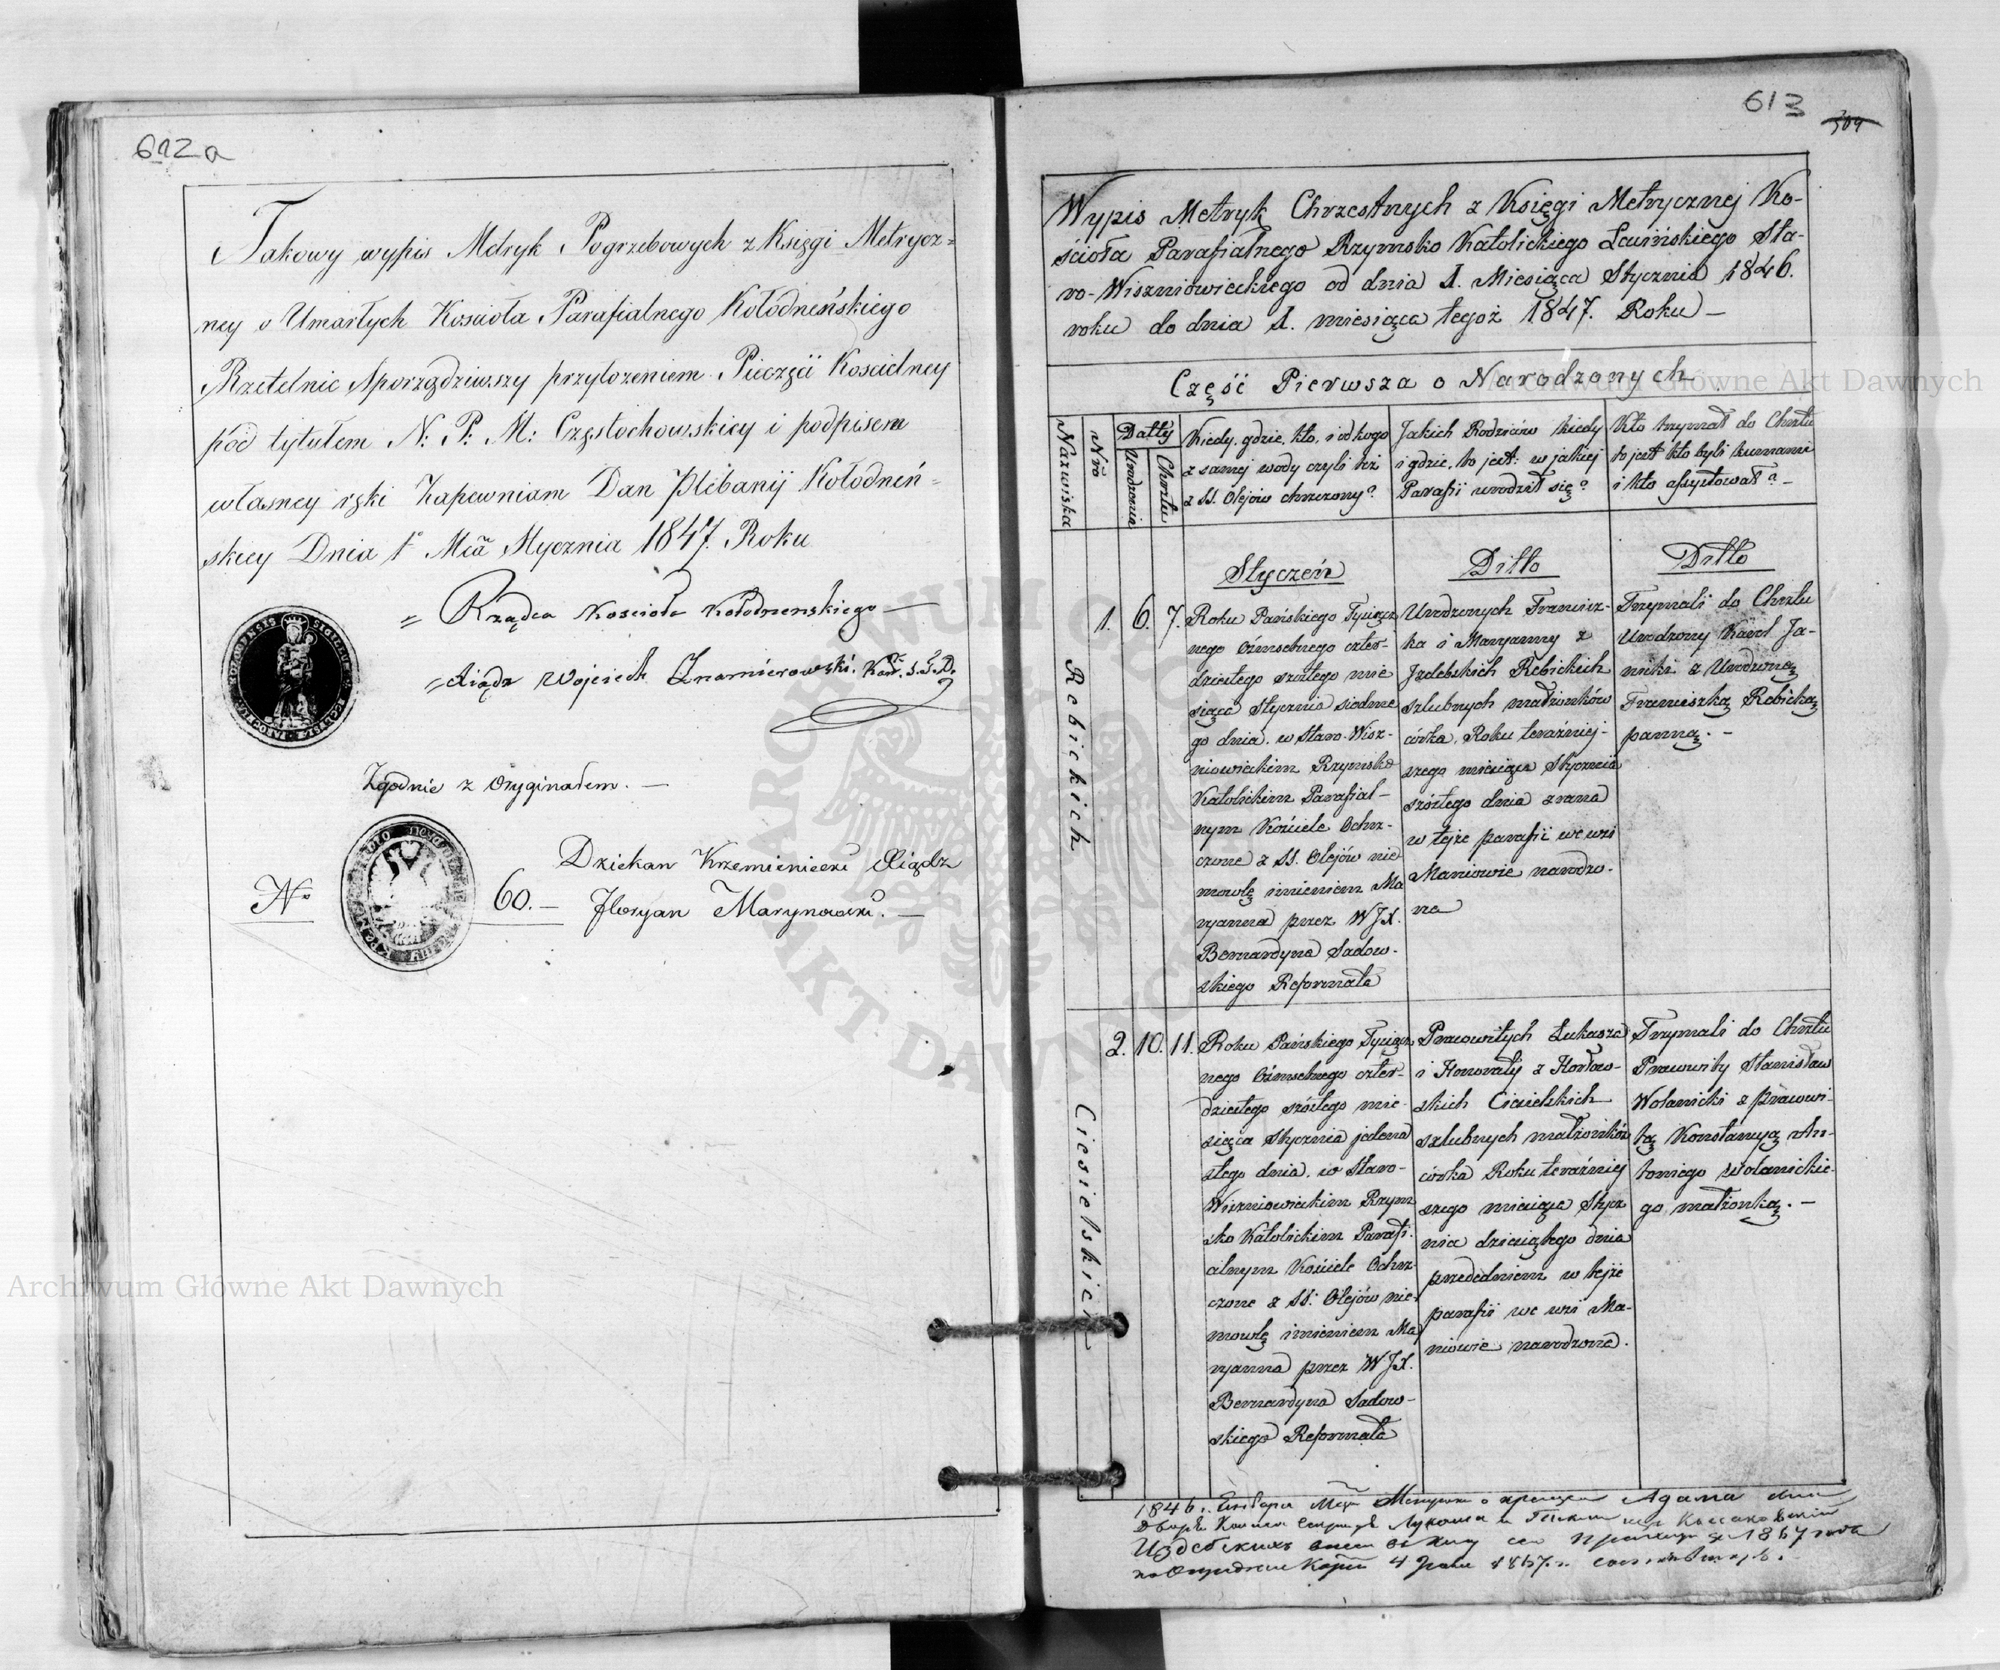 612a
Takowy wypis Metryk Pogrzebowych z Księgi Metrycz=
ney o Umarłych Kościoła Parafialnego Kołodneńskiego
Rzetelnie Sporządziwszy przyłożeniem Pieczęci Koscielney
pód tytułem N: P: M: Częstochowskiey i podpisem
własney ręki Zapewniam Dan w Plibanij Kołodneń=
skiey Dnia 1º Mca Stycznia 1847. Roku
= Rządca Kościoła Kołodnenskiego —
= Xiądz Woyciech Znamierowski. Kan.
Zgodnie z Oryginałem. —
No 60. — Dziekan Krzemieniecki Xiądz
Floryan Marynowski. —
613
309
Wypis Metryk Chrzestnych z Księgi Metrycznej Ko-
ścioła Parafialnego Rzymsko Katolickiego Łacińskiego Sta-
ro-Wiszniowieckiego od dnia 1. Miesiąca Stycznia 1846.
roku do dnia 1. miesiąca tegoż 1847. Roku —
Część Pierwsza o Narodzonych
Nazwiska
Nro
Datty
Urodzenia
Chrztu
Kiedy, gdzie, kto, i od kogo
z samej wody czyli też
z SS. Olejów chrzczony?
Jakich Rodziców kiedy
i gdzie, to jest: w jakiej
Parafii urodził się?
Kto trzymał do Chrztu
to jest kto byli kumami
i kto assystował? —
Styczeń
Ditto
Ditto
Rebickich
1. 6. 7.
Roku Pańskiego Tysiącz
nego Ośmsetnego czter-
dziestego szóstego mie
siąca Stycznia siódme
go dnia. w Staro-Wisz-
niowieckim Rzymsko
Katolickim Parafial-
nym Kościele Ochrz-
czone z SS. Olejów nie
mowlę imieniem Ma
ryanna przez WJX.
Bernardyna Sadow-
skiego Reformata
Urodzonych Francisz-
ka i Maryanny z
Izdebskich Rebickich
szlubnych małżonków
córka, Roku teraźniej-
szego miesiąca Stycznia
szóstego dnia z rana
w tejże parafii we wsi
Maniowie narodzo-
na
Trzymali do Chrztu
Urodzony Karol Ja-
nicki z Urodzoną
Franciszką Rebicką
panną. —
Ciesielskich
2. 10. 11.
Roku Pańskiego Tysiącz
nego Ośmsetnego czter-
dziestego szóstego mie-
siąca Stycznia jedena
stego dnia. w Staro-
Wiszniowieckim Rzym
sko Katolickim Parafi-
alnym Kościele Ochrz-
czone z SS. Olejów nie-
mowlę imieniem Ma
ryanna przez WJX.
Bernardyna Sadow-
skiego Reformata
Pracowitych Łukasza
i Honoraty z Horbow-
skich Ciesielskich
szlubnych małżonków
córka Roku teraźniej
szego miesiąca Stycz
nia dziesiątego dnia
przededniem w tejże
parafii we wsi Ma-
niowie narodzona.
Trzymali do Chrztu
Pracowity Stanisław
Wolanicki z pracowi-
tą Konstancyą An-
toniego Wolanickie-
go małżonką. —
1846. Января Метрика о крещении Адама
Дворян Лукаша и
Издебскихъ 1867 года
4 1867.г.
Archiwum Główne Akt Dawnych
Archiwum Główne Akt Dawnych
ARCHIWUM GŁÓWNE AKT DAWNYCH